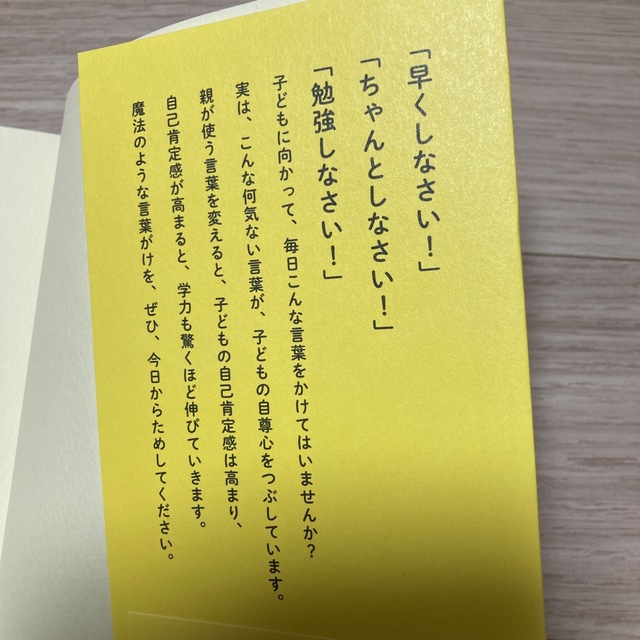 「早くしなさい！」
「ちゃんとしなさい！」
「勉強しなさい！」
子どもに向かって、毎日こんな言葉をかけてはいませんか？
実は、こんな何気ない言葉が、子どもの自尊心をつぶしています。
親が使う言葉を変えると、子どもの自己肯定感は高まり、
自己肯定感が高まると、学力も驚くほど伸びていきます。
魔法のような言葉がけを、ぜひ、今日からためしてください。